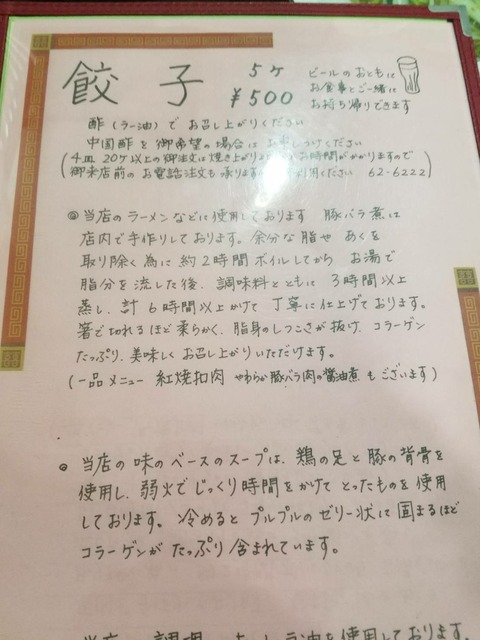 餃子 5ケ ¥500
ビールのおともに
お食事とご一緒に
お持ち帰りできます
酢(ラー油)でお召し上がりください
中国酢を御希望の場合はお申しつけください
(4皿 20ケ以上の御注文は焼き上がり お時間がかかりますので
御来店前のお電話注文も承ります 利用ください 62-6222)
◎当店のラーメンなどに使用しております 豚バラ煮は
店内で手作りしております。余分な脂や あくを
取り除く為に 約2時間ボイルしてから お湯で
脂分を流した後、調味料とともに 3時間以上
蒸し、計6時間以上かけて 丁寧に仕上げております。
箸で切れるほど柔らかく、脂身のしつこさが抜け、コラーゲン
たっぷり、美味しくお召し上がりいただけます。
(一品メニュー 紅焼扣肉 やわらか豚バラ肉の醤油煮 もございます)
◎当店の味のベースのスープは、鶏の足と豚の背骨を
使用し、弱火でじっくり時間をかけてとったものを使用
しております。冷めると プルプルのゼリー状に固まるほど
コラーゲンが たっぷり含まれています。
ラー油を使用しております。